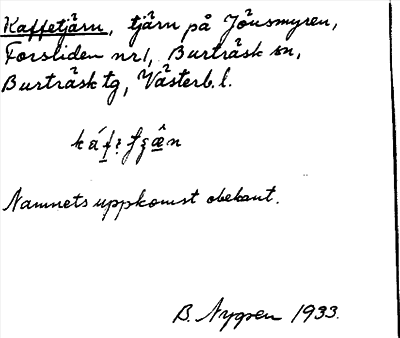 Kaffetjärn, tjärn på Jönsmyren,
Forsliden nr 1, Burträsk sn,
Burträsk tg, Västerb. l.
Namnets uppkomst obekant.
B. Nygren 1933.